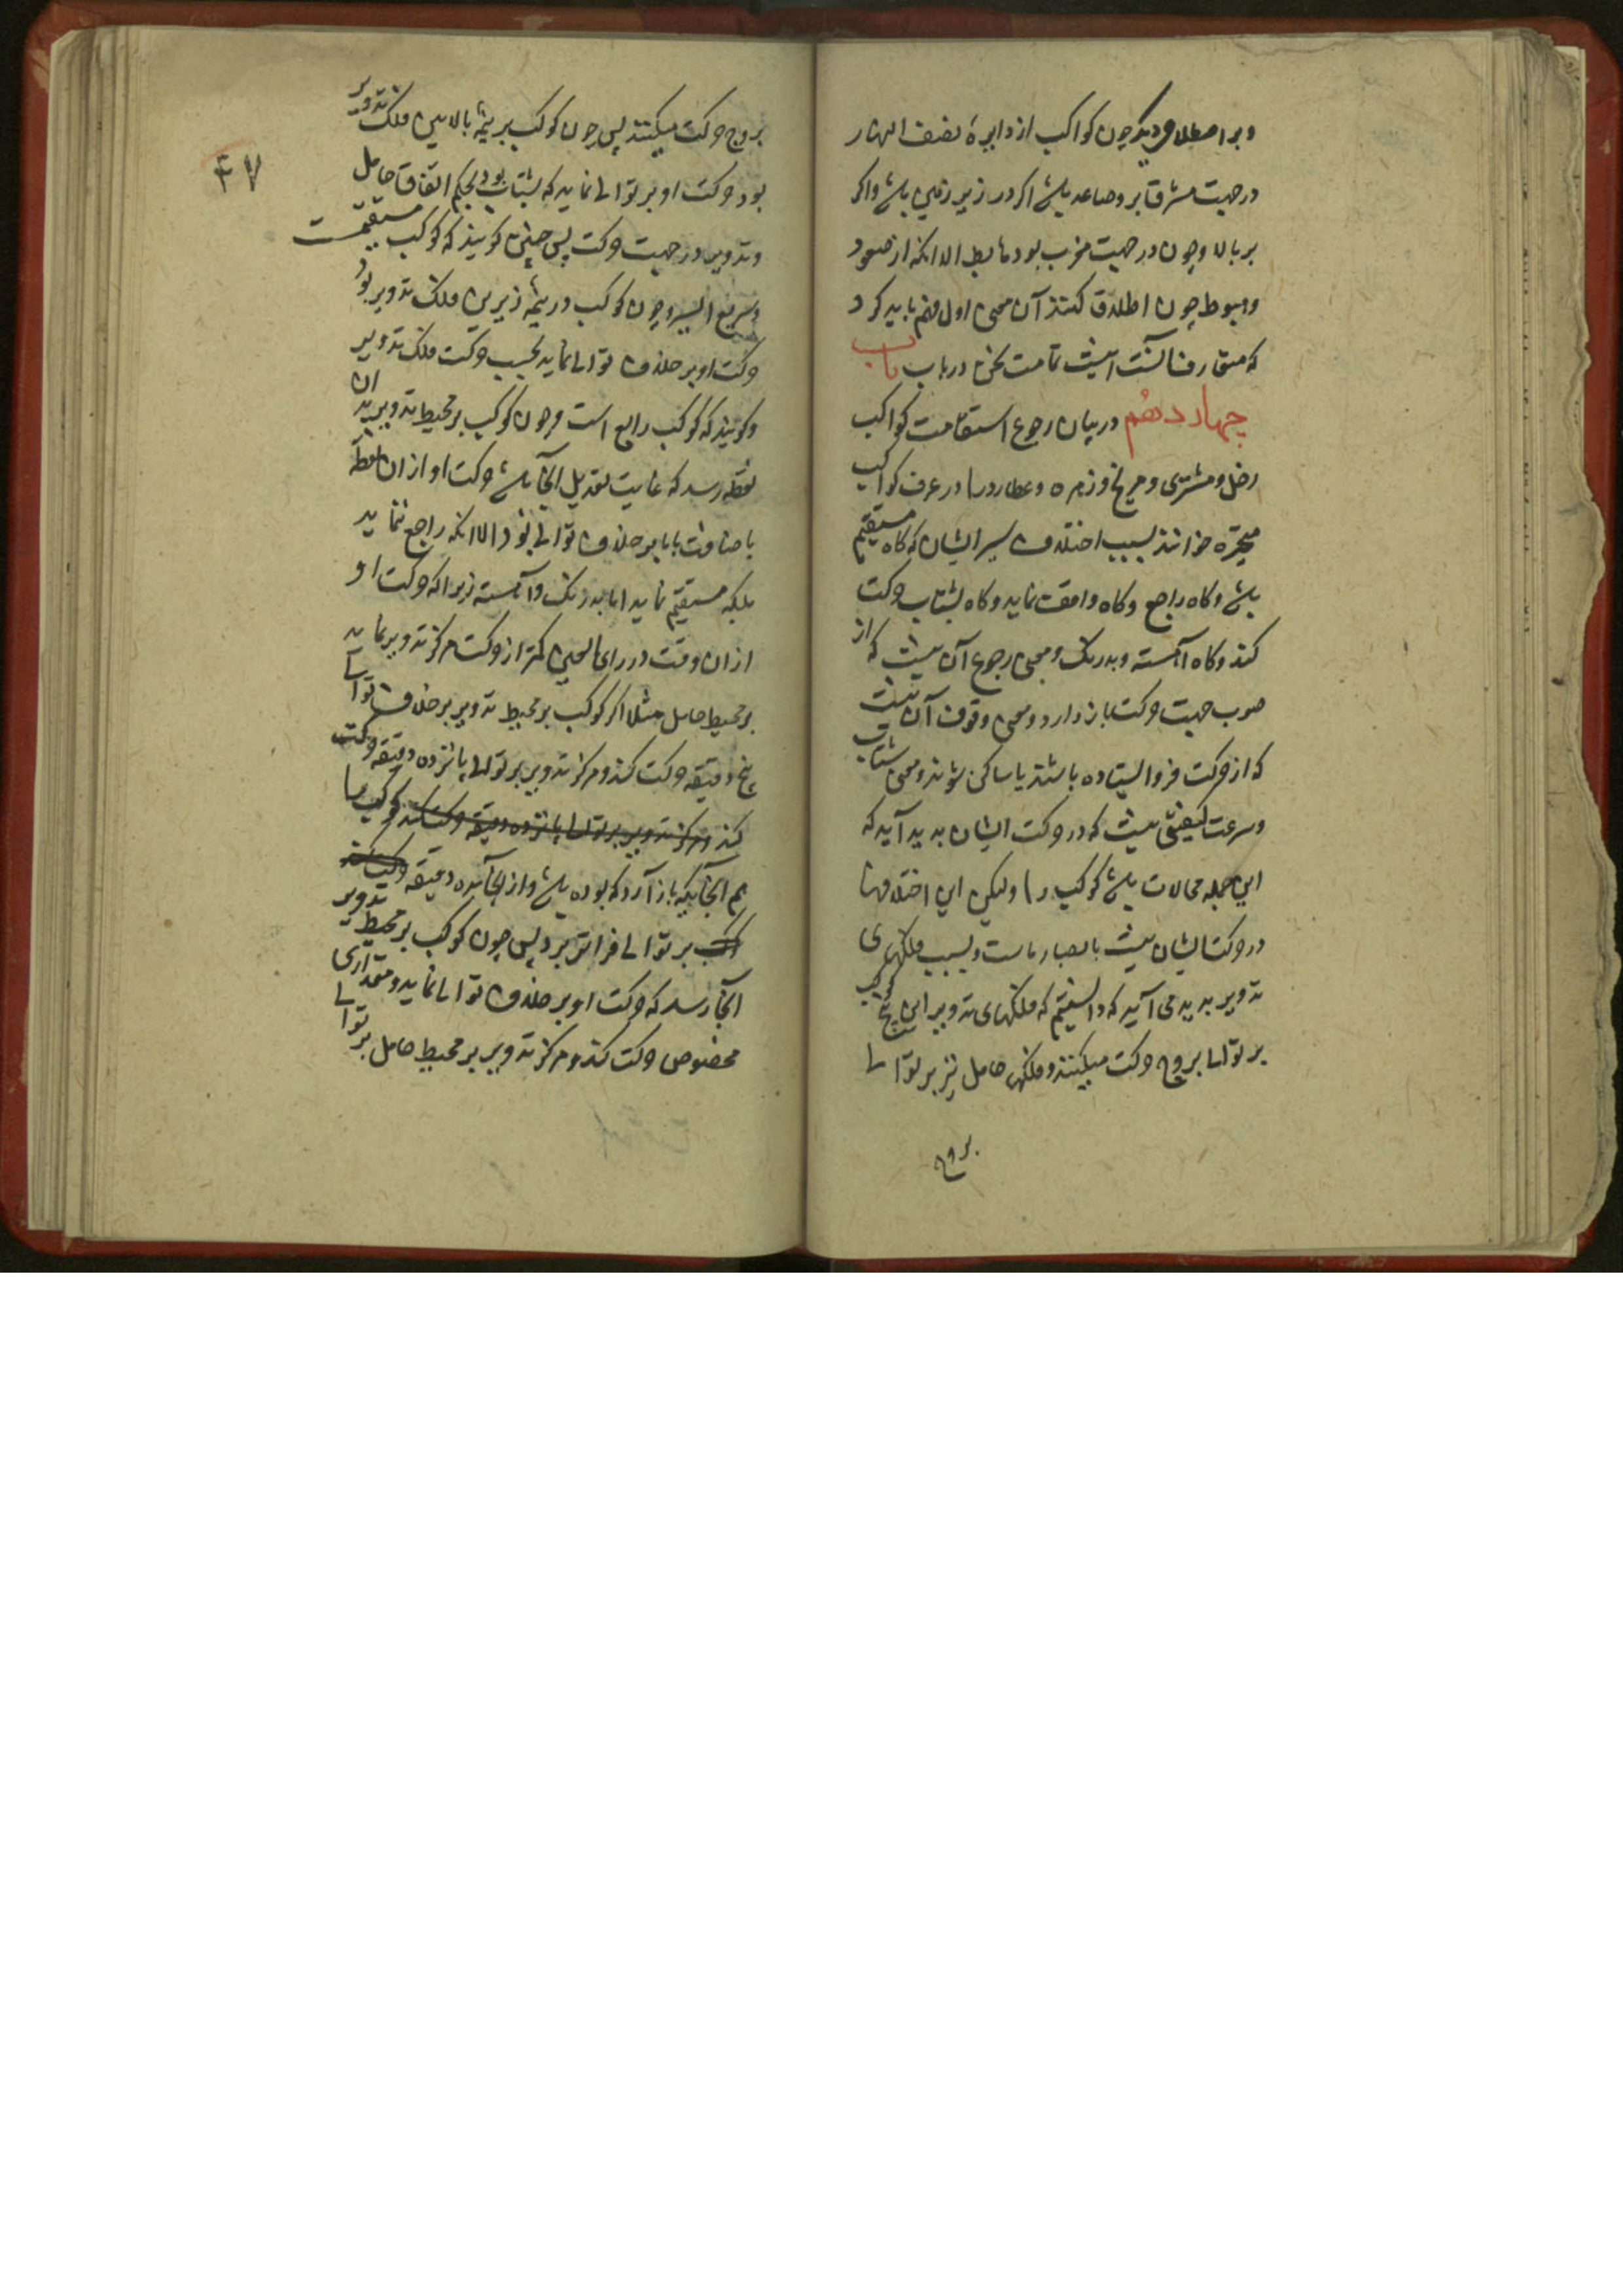 وبر اصطلاح دیگر چون کواکب از دایرهٔ نصف النهار
در جهت مشرق بر وصاعد باشد اگر در زیر زمین باشد واکر
بر بالا وچون در جهت مغرب بود هابط الا انکه از صعود
وهبوط چون اطلاق کنند آن معنی اول فهم باید کرد
که متعارف آنست اینست تمامت سخن در باب باب
چهاردهم در بیان رجوع استقامت کواکب
زحل و مشتری و مریخ و زهره و عطارد را در عرف کواکب
متحیره خوانند بسبب اختلاف سیر ایشان که کاه مستقیم
باشد وکاه راجع وکاه واقف نماید وکاه بشتاب حرکت
کند وکاه آهسته وبدرنک ومعنی رجوع آن نیست که از
صوب جهت حرکت باز دارد ومعنی وقوف آن نیست
که از حرکت فرو ایستاده باشند یا ساکن شوند ومعنی شتاب
وسرعت کیفیتی نیست که در حرکت ایشان بدید آید که
این جمله محالات باشد کوکب را ولیکن این اختلافها
در حرکت ایشان نسبت بابصار ماست وبسبب فلکهای
تدویر بدید می آید که دانستیم که فلکهای تدویر این پنج کوکب
بر توالی بروج حرکت میکنند وفلکهای حامل نیز بر توالی
بروج
۴۷
بروج حرکت میکنند پس چون کوکب بر نیمهٔ بالایین فلک تدویر
بود حرکت او بر توالی نماید که بشتاب بود بحکم اتفاق حامل
وتدویر در جهت حرکت پس چنین کویند که کوکب مستقیمست
وسریع السیر وچون کوکب در نیمهٔ زیرین فلک تدویر بود
حرکت او بر خلاف توالی نماید بحسب حرکت فلک تدویر
وکویند که کوکب راجع است وچون کوکب بر محیط تدویر بدان
نقطه رسد که غایت تعدیل آنجا باشد حرکت او از ان نقطه
باضافت با ما بر خلاف توالی بود الا انکه راجع ننماید
بلکه مستقیم نماید اما بدرنک وآهسته زیرا که حرکت او
از ان وقت در رای العین کمتر از حرکت مرکز تدویر نماید
بر محیط حامل مثلا اکر کوکب بر محیط تدویر بر خلاف توالی
پنج دقیقه حرکت کند ومرکز تدویر بر توالی پانزده دقیقه حرکت
کند ومرکز تدویر بر توالی پانزده دقیقه حرکت کند کوکب را
هم آنجایکه باز آرد که بوده باشد واز آنجا ده دقیقه
بر توالی فراتر برد پس چون کوکب بر محیط تدویر
آنجا رسد که حرکت او بر خلاف توالی نماید ومقداری
مخصوص حرکت کند ومرکز تدویر بر محیط حامل بر توالی